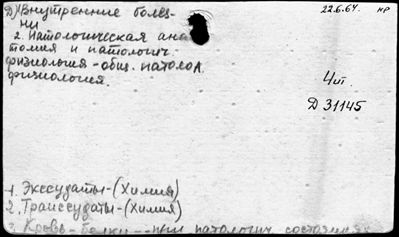 Д) Внутренние болез-
ни
2. Патологическая ана
томия и патологич.
физиология - общ. патолог.
физиология.
22.6.64. НР
Чит.
Д 31145
1. Экссудаты - (Химия)
2. Транссудаты - (Химия)
3 Кровь - белки - при патологич состояния